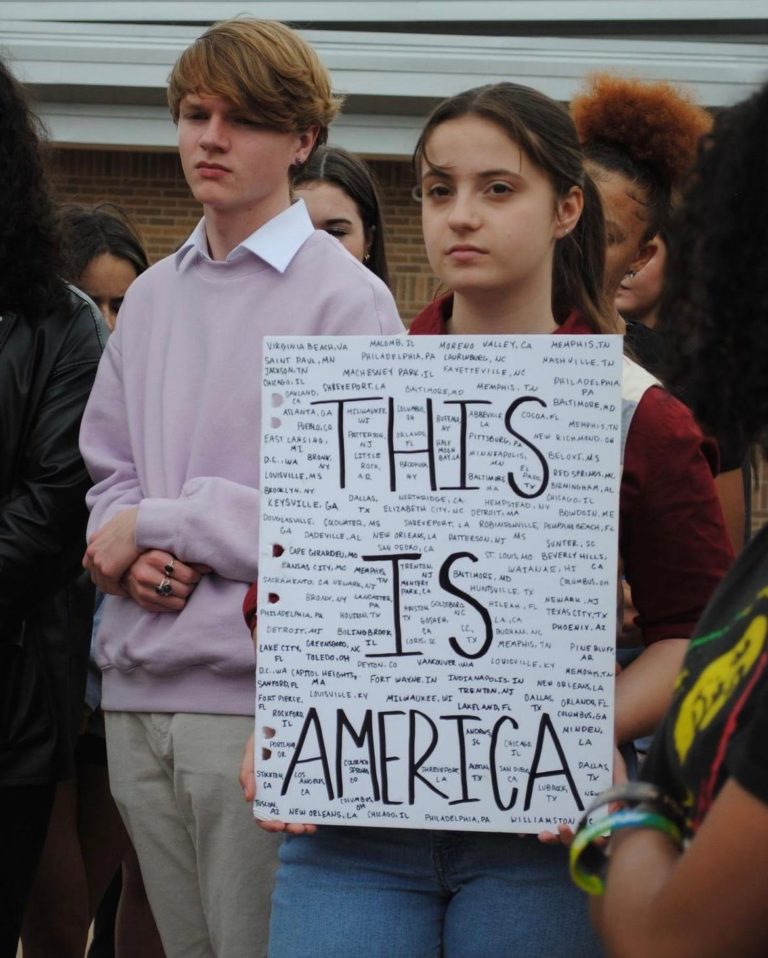 VIRGINIA BEACH, VA MALOMB, IL MORENO VALLEY, CA MEMPHIS, TN
SAINT PAUL, MN PHILADELPHIA, PA LAURINBURG, NC NASHVILLE, TN
JACKSON, TN MACHESNEY PARK, IL FAYETTEVILLE, NC PHILADELPHIA, PA
CHICAGO, IL SHREVEPORT, LA BALTIMORE, MD MEMPHIS, TN
OAKLAND, CA BALTIMORE, MD
ATLANTA, GA MILWAUKEE, WI COLUMBIA, BUFFALO, NY ABBEVILLE LA COCOA, FL MEMPHIS, TN
PUEBLO, CO PATTERSON, NJ ORLANDO, FL HALF MOON BAY, LA PITTSBURG, PA NEW RICHMOND, OH
EAST LANSING, MI LITTLE ROCK, AR BROOKLYN, NY MINNEAPOLIS, MN BELOXI, MS
D.C., WA BRONX, NY BALTIMORE EL PASO, TX RED SPRINGS, NC
LOUISVILLE, MS BIRMINGHAM, AL
BROOKLYN, NY DALLAS, TX NORTHRIDGE, CA HEMPSTEAD, NY CHICAGO, IL
KEYSVILLE, GA ELIZABETH CITY, NC DETROIT, MA BOWDOIN, ME
DOUGLASVILLE, GA COLDWATER, MS SHREVEPORT, LA ROBINSONVILLE, MS POMPANO BEACH, FL
DADEVILLE, AL NEW ORLEANS, LA PATTERSON, NY SUMTER, SC
THIS
CAPE GIRARDEU, MO SAN PEDRO, CA ST. LOUIS, MO BEVERLY HILLS, CA
KANSAS CITY, MO MEMPHIS, TN TRENTON, NJ BALTIMORE, MD WAIANAE, HI
SACRAMENTO, CA NEWARK, NJ PARK, CA HUNTSVILLE, TX COLUMBUS, OH
BRONX, NY LANCASTER, PA GOLDSBORO, NC HILEAH, FL NEWARK, NJ
PHILADELPHIA, PA HOUSTON, TX HOUSTON TX L.A., CA TEXAS CITY, TX
DETROIT, MI BOLINGBROOK, IL DURHAM, NC PHOENIX, AZ
IS
LAKE CITY, FL GREENSBORO, NC MEMPHIS, TN PINE BLUFF, AR
TOLEDO, OH PEYTON, CO VANCOUVER, WA LOUISVILLE, KY MEMPHIS, TN
D.C., WA CAPITOL HEIGHTS, MA FORT WAYNE, IN INDIANAPOLIS, IN NEW ORLEANS, LA
SANFORD, FL TRENTON, NJ
FORT PIERCE, FL LOUISVILLE, KY MILWAUKEE, WI LAKELAND, FL DALLAS, TX ORLANDO, FL
ROCKFORD, IL COLUMBUS, GA
PORTLAND, OR CHICAGO, IL MINDEN, LA
STOCKTON, CA LOS ANGELES, CA COLORADO SPRINGS, CO SHREVEPORT, LA AUSTIN, TX SAN DIEGO, CA DALLAS, TX
AMERICA
COLUMBUS, OH LUBBOCK, TX NEW
TUSCON, AZ NEW ORLEANS, LA CHICAGO, IL PHILADELPHIA, PA WILLIAMSTON